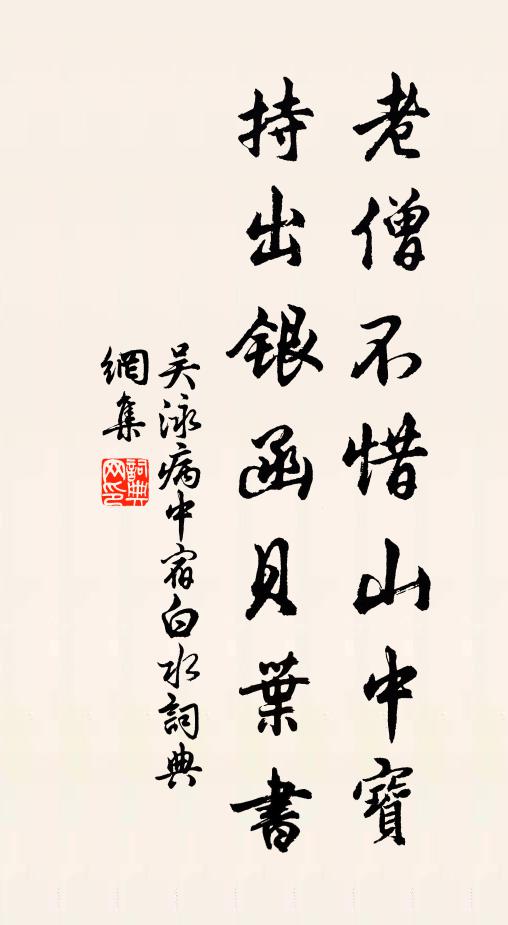 老僧不惜山中寶
持出銀函貝葉書
吴泳病中宿白水詞典
網集
詞典
网印